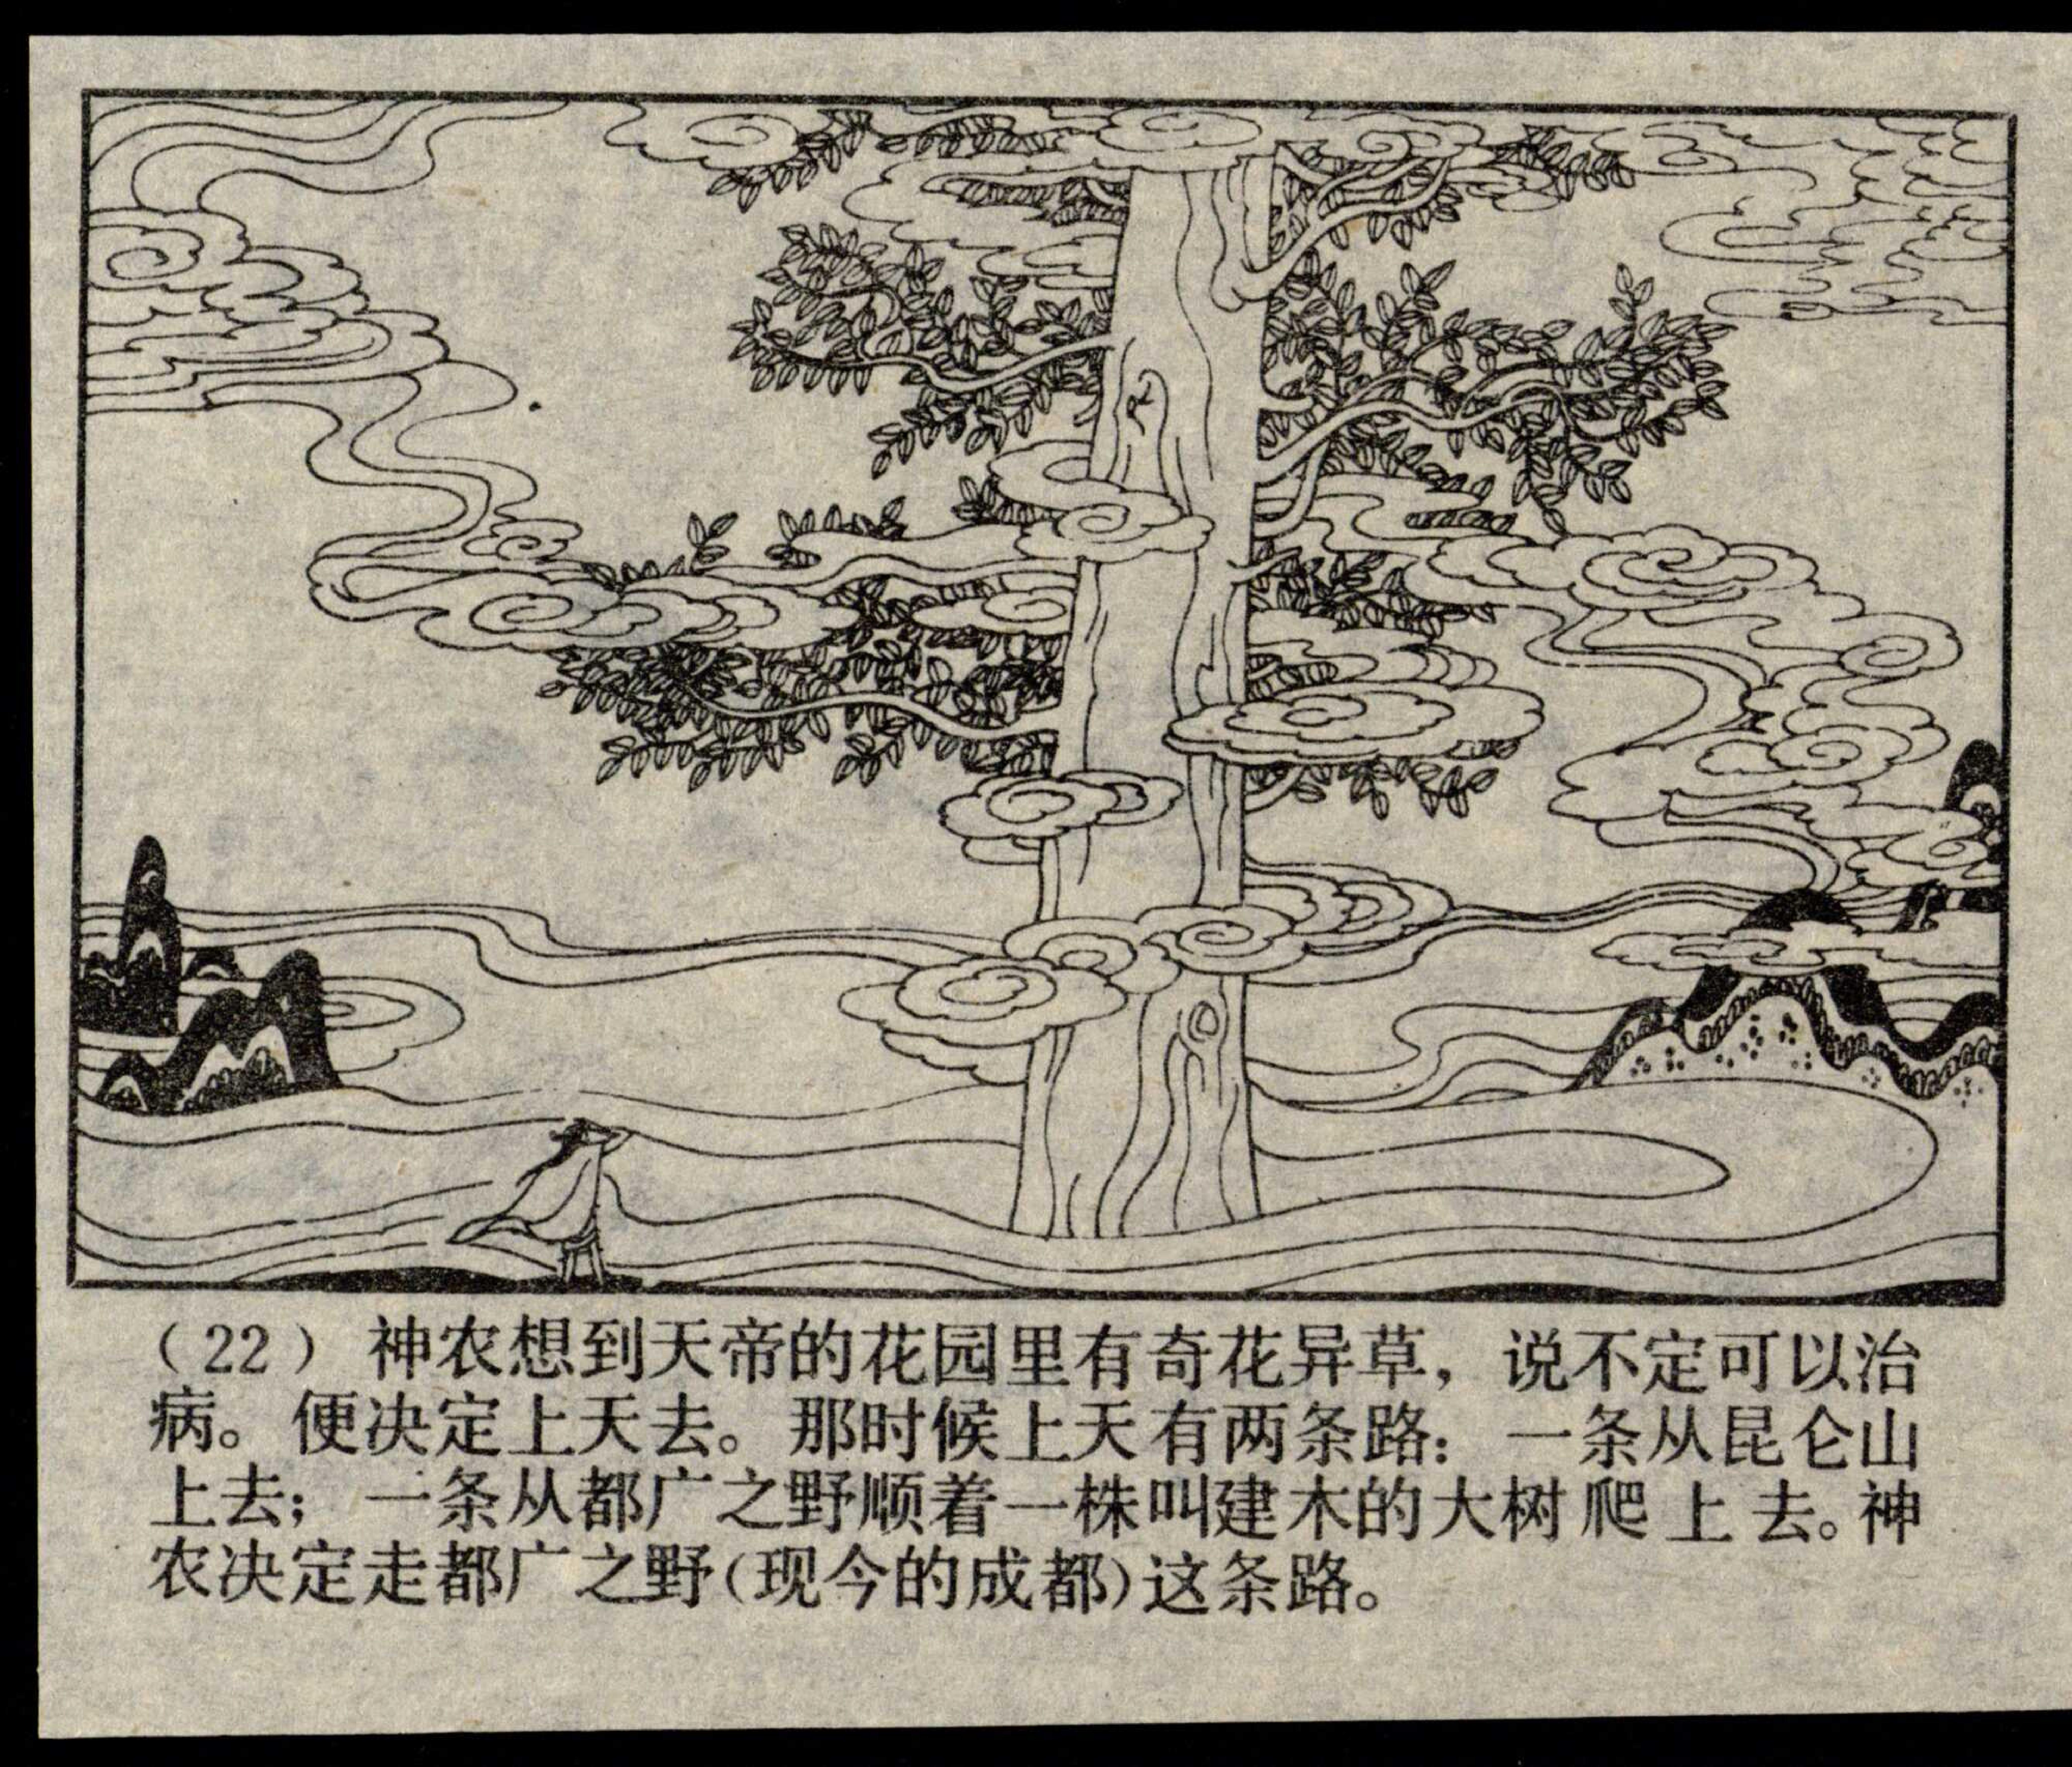 （22） 神农想到天帝的花园里有奇花异草，说不定可以治
病。便决定上天去。那时候上天有两条路：一条从昆仑山
上去；一条从都广之野顺着一株叫建木的大树爬上去。神
农决定走都广之野（现今的成都）这条路。